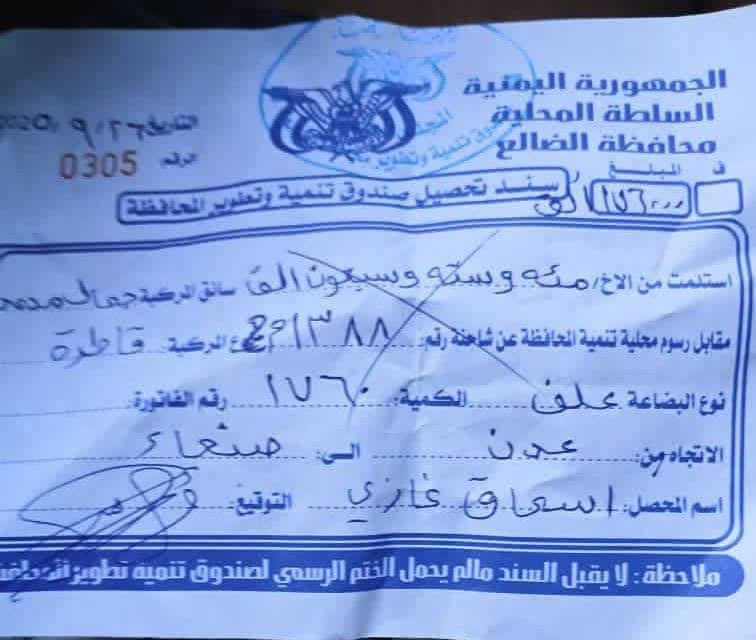 الجمهورية اليمنية
السلطة المحلية
محافظة الضالع
التاريخ ٢٦ / ٩ / 2020
الرقم 0305
المبلغ
ف
١٧٦٠٠٠ الف
سند تحصيل صندوق تنمية وتطوير المحافظة
استلمت من الاخ/ مئه وسته وسبعون الف سائق المركبة جمال محمد
مقابل رسوم محلية تنمية المحافظة عن شاحنة رقم: نوع المركبة: قاطرة
نوع البضاعة علف الكمية: ١٧٦٠ رقم الفاتورة:
الاتجاه من: عدن الى: صنعاء
اسم المحصل: اسحاق غازي التوقيع:
ملاحظة: لا يقبل السند مالم يحمل الختم الرسمي لصندوق تنمية تطوير المحافظة